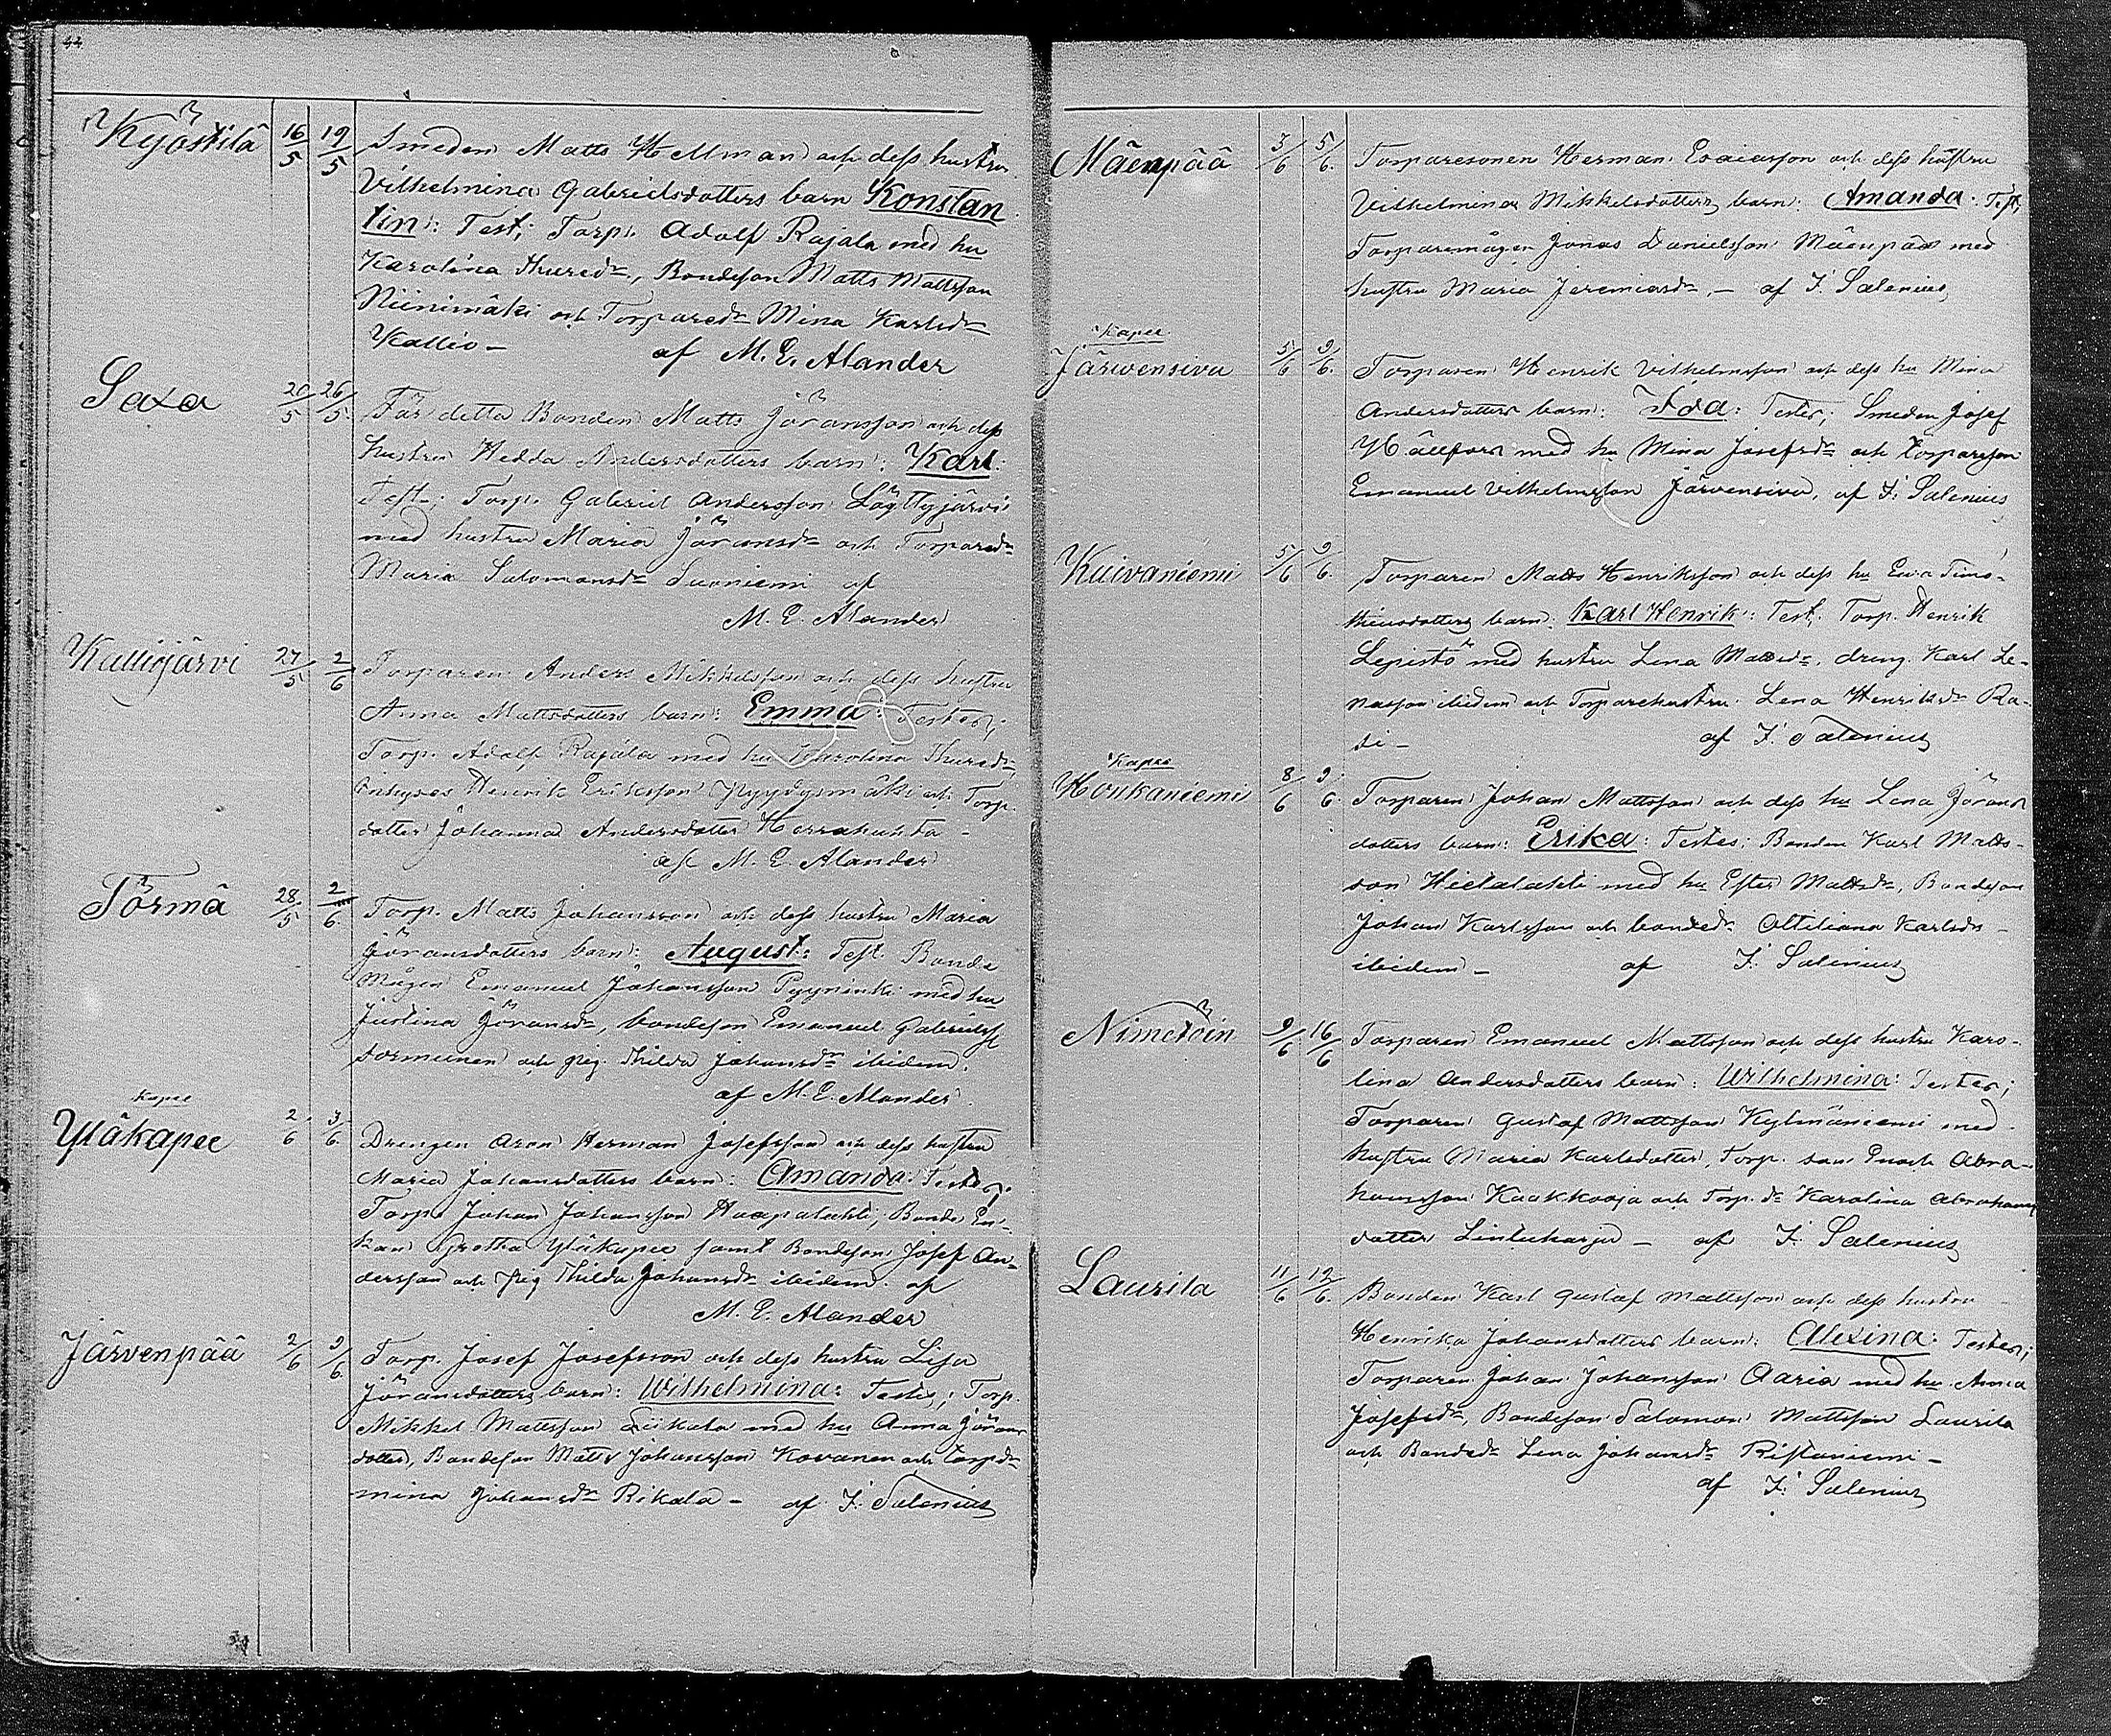 44
Kyöstilä 16/5 19/5 Smeden Matts Hellman och dess hustru
Vilhelmina Gabrielsdotters barn Konstan
tin: Test; Torp. Adolf Rajala med hu
Karolina Thuredr, Bondeson Matts Mattsson
Niinimäki och Torparedr Mina Karlsdr
Kallio —
af M. E. Alander
Saxa 20/5 26/5 För detta Bonden Matts Jöransson och dess
hustru Hedda Andersdotters barn: Karl:
Test: Torp. Gabriel Andersson Löyttyjärvi
med hustru Maria Jöransdr och Torparedr
Maria Salomonsdr Suoniemi af
M. E. Alander
Kalliojärvi 27/5 2/6 Torparen Anders Mikkelsson och dess hustru
Anna Mattsdotters barn: Emma: Testes;
Torp. Adolf Rajala med hu Karolina Thuredr,
Henrik Eriksson Pyydysmäki och Torp.
dotter Johanna Andersdotter Herrakunta —
af M. E. Alander
Törmä 28/5 2/6 Torp. Matts Johansson och dess hustru Maria
Jöransdotters barn: August: Test. Bonde
Mågen Emanuel Johansson Pyyninki med hu
Justina Jöransdr, bondeson Emanuel Gabrielss
Tormeinen och pig. Thilda Johansdr ibidem.
af M. E. Alander.
Kapee
Yläkapee 2/6 3/6 Drengen Aron Herman Josefsson och dess hustru
Maria Johansdotters barn: Amanda: Testes;
Torp. Johan Johansson Haapalahti, Bonde En-
kan Gretha Yläkapee samt Bondeson Josef An-
dersson och pig Thilda Johansdr ibidem. af
M. E. Alander
Järvenpää 2/6 9/6 Torp. Josef Josefsson och dess hustru Lisa
Jöransdotters barn: Wilhelmina: Testes; Torp.
Mikkel Mattsson Liikala med hu Anna Jörans
dotter, Bondeson Matts Johansson Kovanen och torpdr
mina Johansdr Rikala — af F. Salenius
Mäenpää 3/6 5/6 Torparesonen Herman Esaiasson och dess hustru
Vilhelmina Mikkelsdotters barn: Amanda: Test,
Torparemågen Jonas Danielsson Mäenpää med
hustru Maria Jeremiasdr, — af F. Salenius
Kapee
Järwensivu 5/6 9/6 Torparen Henrik Vilhelmsson och dess hu Mina
Andersdotters barn: Ida: Testes; Smeden Josef
Hällfors med hu Mina Josefsdr och torparson
Emanuel Vilhelmsson Järvensivu, af F. Salenius
Kuivaniemi 5/6 9/6 Torparen Matts Henriksson och dess hu Eva Timo-
theusdotters barn: Karl Henrik: Test; Torp. Henrik
Lepistö med hustru Lena Mattsdr, dreng. Karl Le-
nasson ibidem och Torparehustru Lena Henriksdr Ra-
si — af F. Salenius
Kapee
Houkaniemi 8/6 9/6 Torparen Johan Mattsson och dess hu Lena Jörans
dotters barn: Erika: Testes: Bonden Karl Matts-
son Hietalahti med hu Ester Mattsdr, Bondeson
Johan Karlsson och bondedr Ottiliana Karlsdr —
ibidem — af F. Salenius
Nimetöin 9/6 16/6 Torparen Emanuel Mattsson och dess hustru Karo-
lina Andersdotters barn: Wilhelmina: Testes;
Torparen Gustaf Mattsson Kylmäniemi med
hustru Maria Karlsdotter, Torp. son Enoch Abra-
hamsson Kaakkooja och Torp. dr Karolina Abrahams
dotter Lintuharju — af F. Salenius
Laurila 11/6 12/6 Bonden Karl Gustaf Mattsson och dess hustru
Henrika Johansdotters barn: Alexina: Testes;
Torparen Johan Johansson Aaria med hu Anna
Josefsdr, Bondeson Salomon Mattsson Laurila
och Bondedr Lena Johansdr Ristaniemi —
af F. Salenius